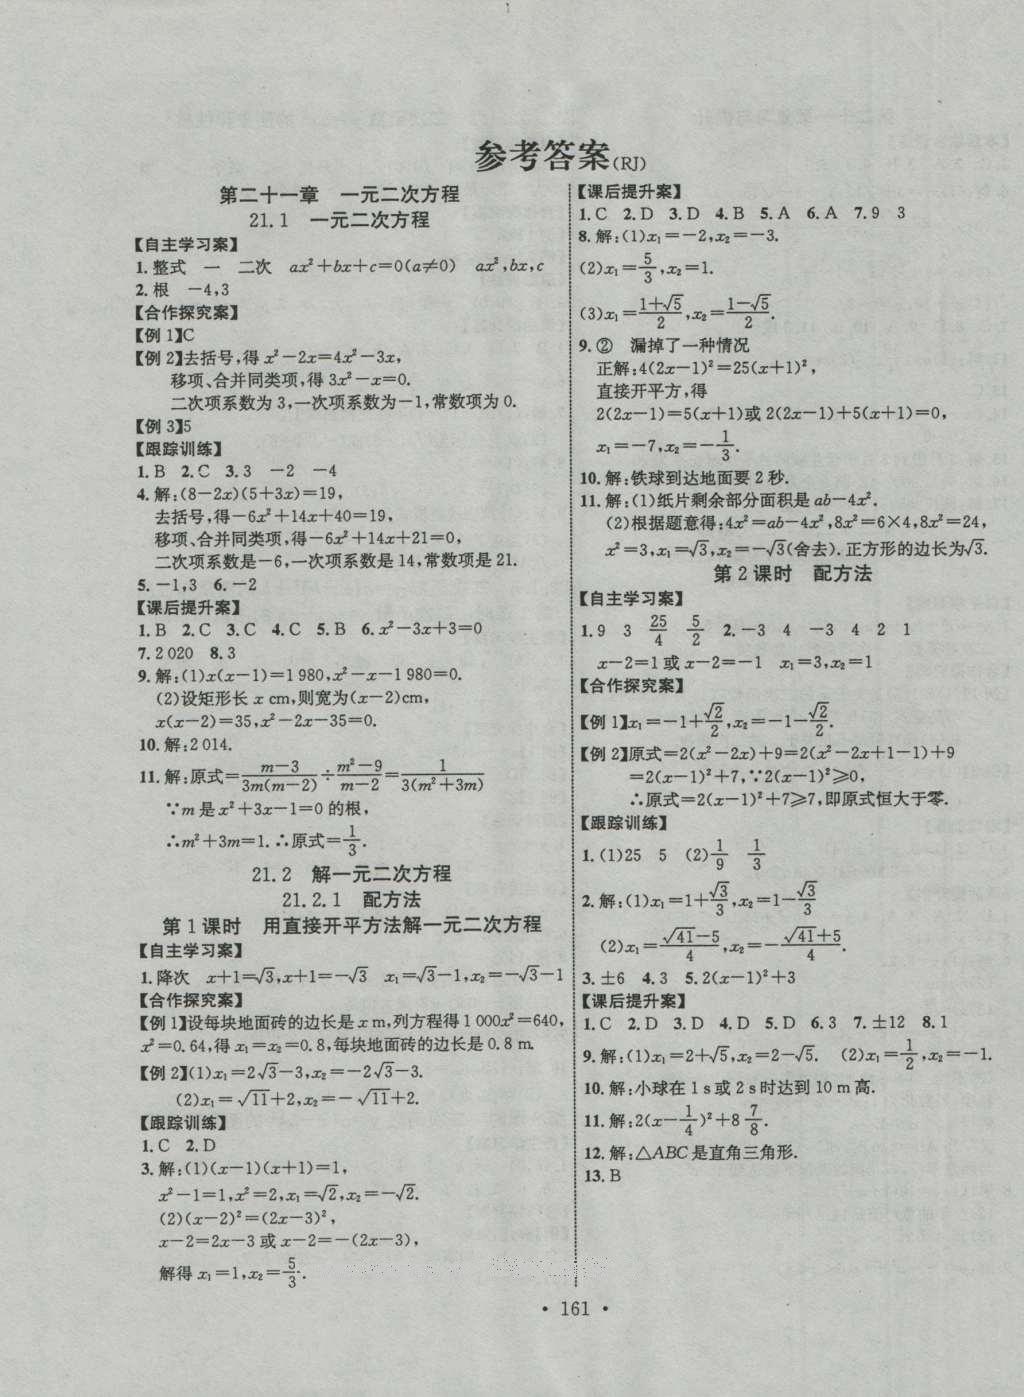 参考答案(RJ)
第二十一章　一元二次方程
21.1　一元二次方程
【自主学习案】
1.整式　一　二次　ax²+bx+c=0(a≠0)　ax²,bx,c
2.根　-4,3
【合作探究案】
【例1】C
【例2】去括号,得 x²-2x=4x²-3x,
移项、合并同类项,得 3x²-x=0.
二次项系数为 3,一次项系数为-1,常数项为 0.
【例3】5
【跟踪训练】
1.B　2.C　3.3　-2　-4
4.解:(8-2x)(5+3x)=19,
去括号,得-6x²+14x+40=19,
移项、合并同类项,得-6x²+14x+21=0,
二次项系数是-6,一次项系数是 14,常数项是 21.
5.-1,3　6.-2
【课后提升案】
1.B　2.C　3.C　4.C　5.B　6.x²-3x+3=0
7.2 020　8.3
9.解:(1)x(x-1)=1 980,x²-x-1 980=0.
(2)设矩形长 x cm,则宽为(x-2)cm,
x(x-2)=35,x²-2x-35=0.
10.解:2 014.
11.解:原式=(m-3)/(3m(m-2))÷(m²-9)/(m-2)=1/(3(m²+3m))
∵m 是 x²+3x-1=0 的根,
∴m²+3m=1.∴原式=1/3.
21.2　解一元二次方程
21.2.1　配方法
第 1 课时　用直接开平方法解一元二次方程
【自主学习案】
1.降次　x+1=√3,x+1=-√3　x₁=√3-1,x₂=-√3-1
【合作探究案】
【例1】设每块地面砖的边长是 x m,列方程得 1 000x²=640,
x²=0.64,得 x₁=x₂=0.8,每块地面砖的边长是 0.8 m.
【例2】(1)x₁=2√3-3,x₂=-2√3-3.
(2)x₁=√11+2,x₂=-√11+2.
【跟踪训练】
1.C　2.D
3.解:(1)(x-1)(x+1)=1,
x²-1=1,x²=2,x₁=√2,x₂=-√2.
(2)(x-2)²=(2x-3)²,
x-2=2x-3 或 x-2=-(2x-3),
解得 x₁=1,x₂=5/3.
【课后提升案】
1.C　2.D　3.D　4.B　5.A　6.A　7.9　3
8.解:(1)x₁=-2,x₂=-3.
(2)x₁=5/3,x₂=1.
(3)x₁=(1+√5)/2,x₂=(1-√5)/2.
9.②　漏掉了一种情况
正解:4(2x-1)²=25(x+1)²,
直接开平方,得
2(2x-1)=5(x+1)或 2(2x-1)+5(x+1)=0,
x₁=-7,x₂=-1/3.
10.解:铁球到达地面要 2 秒.
11.解:(1)纸片剩余部分面积是 ab-4x².
(2)根据题意得:4x²=ab-4x²,8x²=6×4,8x²=24,
x²=3,x₁=√3,x₂=-√3(舍去).正方形的边长为√3.
第 2 课时　配方法
【自主学习案】
1.9　3　25/4　5/2　2.-3　4　-3　4　2　1
x-2=1 或 x-2=-1　x₁=3,x₂=1
【合作探究案】
【例1】x₁=-1+√2/2,x₂=-1-√2/2.
【例2】原式=2(x²-2x)+9=2(x²-2x+1-1)+9
=2(x-1)²+7,∵2(x-1)²⩾0,
∴原式=2(x-1)²+7⩾7,即原式恒大于零.
【跟踪训练】
1.(1)25　5　(2)1/9　1/3
2.解:(1)x₁=1+√3/3,x₂=1-√3/3
(2)x₁=(√41-5)/4,x₂=-(√41+5)/4.
3.±6　4.3　5.2(x-1)²+3
【课后提升案】
1.C　2.D　3.D　4.D　5.D　6.3　7.±12　8.1
9.解:(1)x₁=2+√5,x₂=2-√5.　(2)x₁=1/2,x₂=-1.
10.解:小球在 1 s或 2 s时达到 10 m高.
11.解:2(x-1/4)²+8 7/8.
12.解:△ABC是直角三角形.
13.B
• 161 •